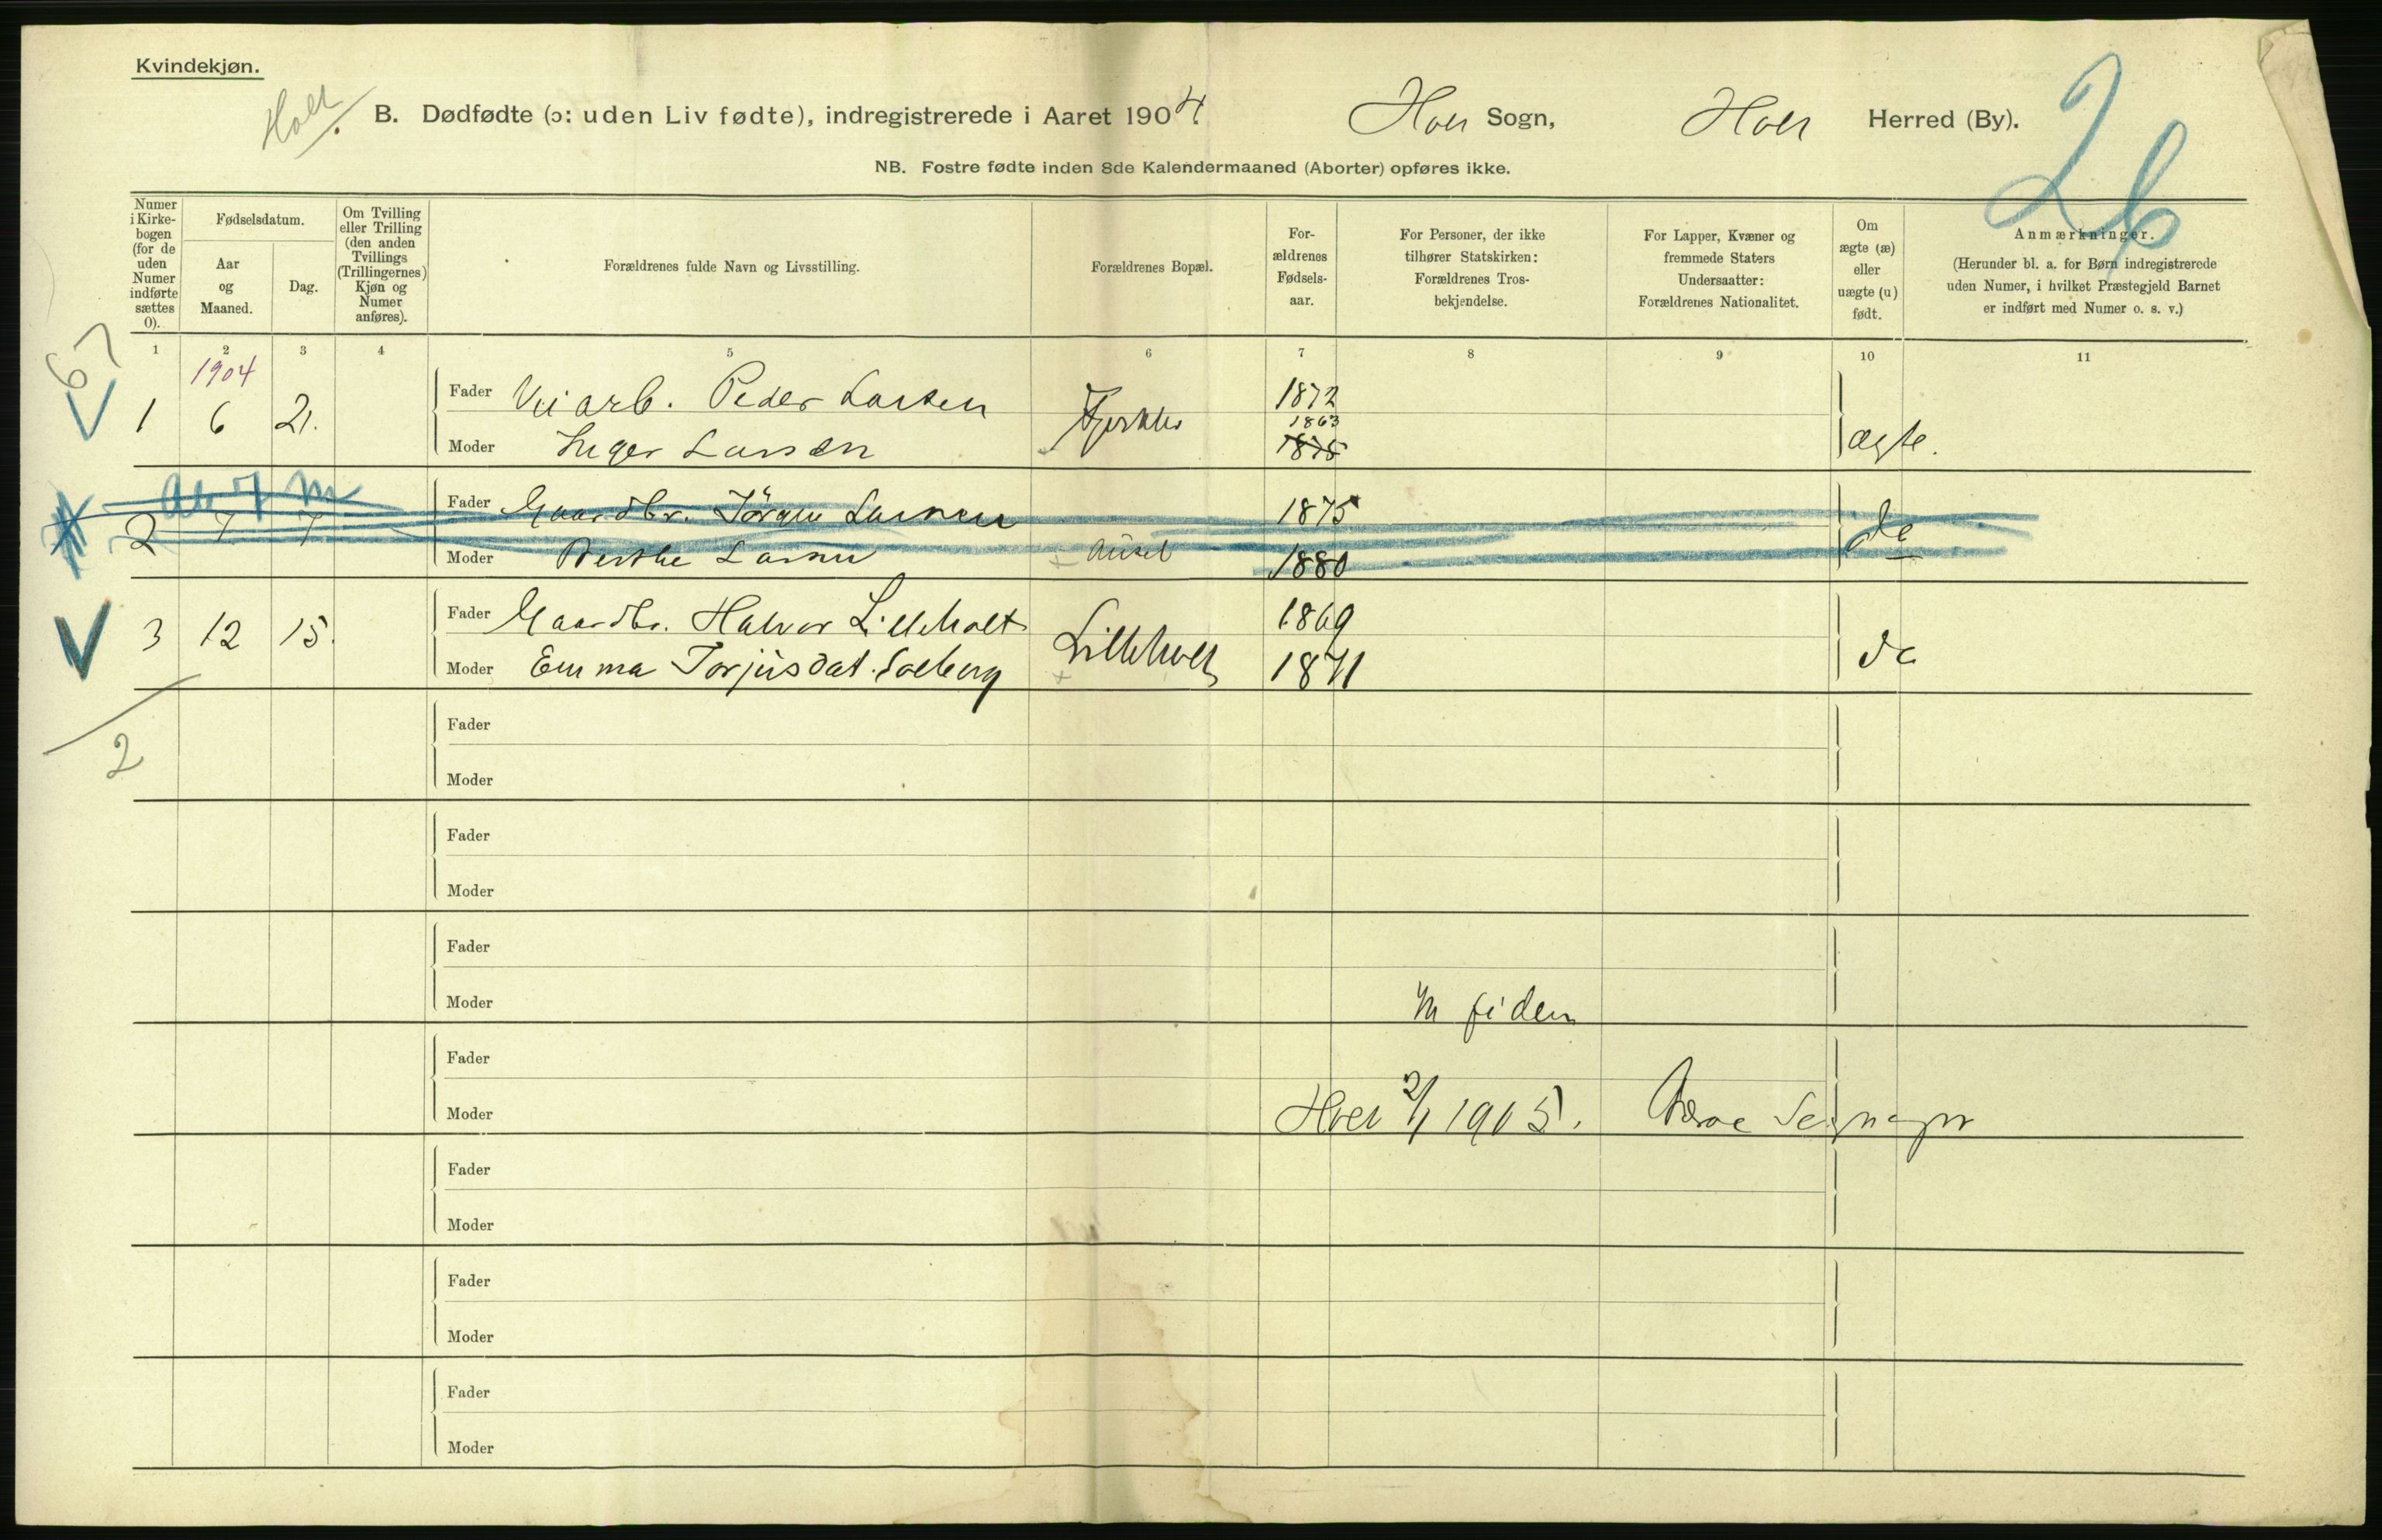 Kvindekjøn.
Holt.
B. Dødfødte (ɔ: uden Liv fødte), indregistrerede i Aaret 1904. Holt Sogn, Holt Herred (By).
26
NB. Fostre fødte inden 8de Kalendermaaned (Aborter) opføres ikke.
Numer i Kirkebogen (for de uden Numer indførte sættes 0).
Fødselsdatum.
Aar og Maaned.
Dag.
Om Tvilling eller Trilling (den anden Tvillings (Trillingernes) Kjøn og Numer anføres).
Forældrenes fulde Navn og Livsstilling.
Forældrenes Bopæl.
Forældrenes Fødselsaar.
For Personer, der ikke tilhører Statskirken: Forældrenes Trosbekjendelse.
For Lapper, Kvæner og fremmede Staters Undersaatter: Forældrenes Nationalitet.
Om ægte (æ) eller uægte (u) født.
Anmærkninger.
(Herunder bl. a. for Børn indregistrerede uden Numer, i hvilket Præstegjeld Barnet er indført med Numer o. s. v.)
1 2 3 4 5 6 7 8 9 10 11
67
1904
1 6 21. Fader Veiarb. Peder Larsen 1872
1863
Moder Inger Larsen 1875 ægte.
Ab 7 M
2 7 7 Fader Gaardbr. Jörgen Larsen 1875 do
Moder Berthe Larsen 1880
3 12 15. Fader Gaardbr. Halvor Lilleholt Lilleholt 1869
Moder Emma Torjusdat. Solberg 1871 do
2
Fader
Moder
Fader
Moder
Fader
Moder
m fidem
Fader
Moder
Holt 2/1 1905.
Fader
Moder
Fader
Moder
Fader
Moder